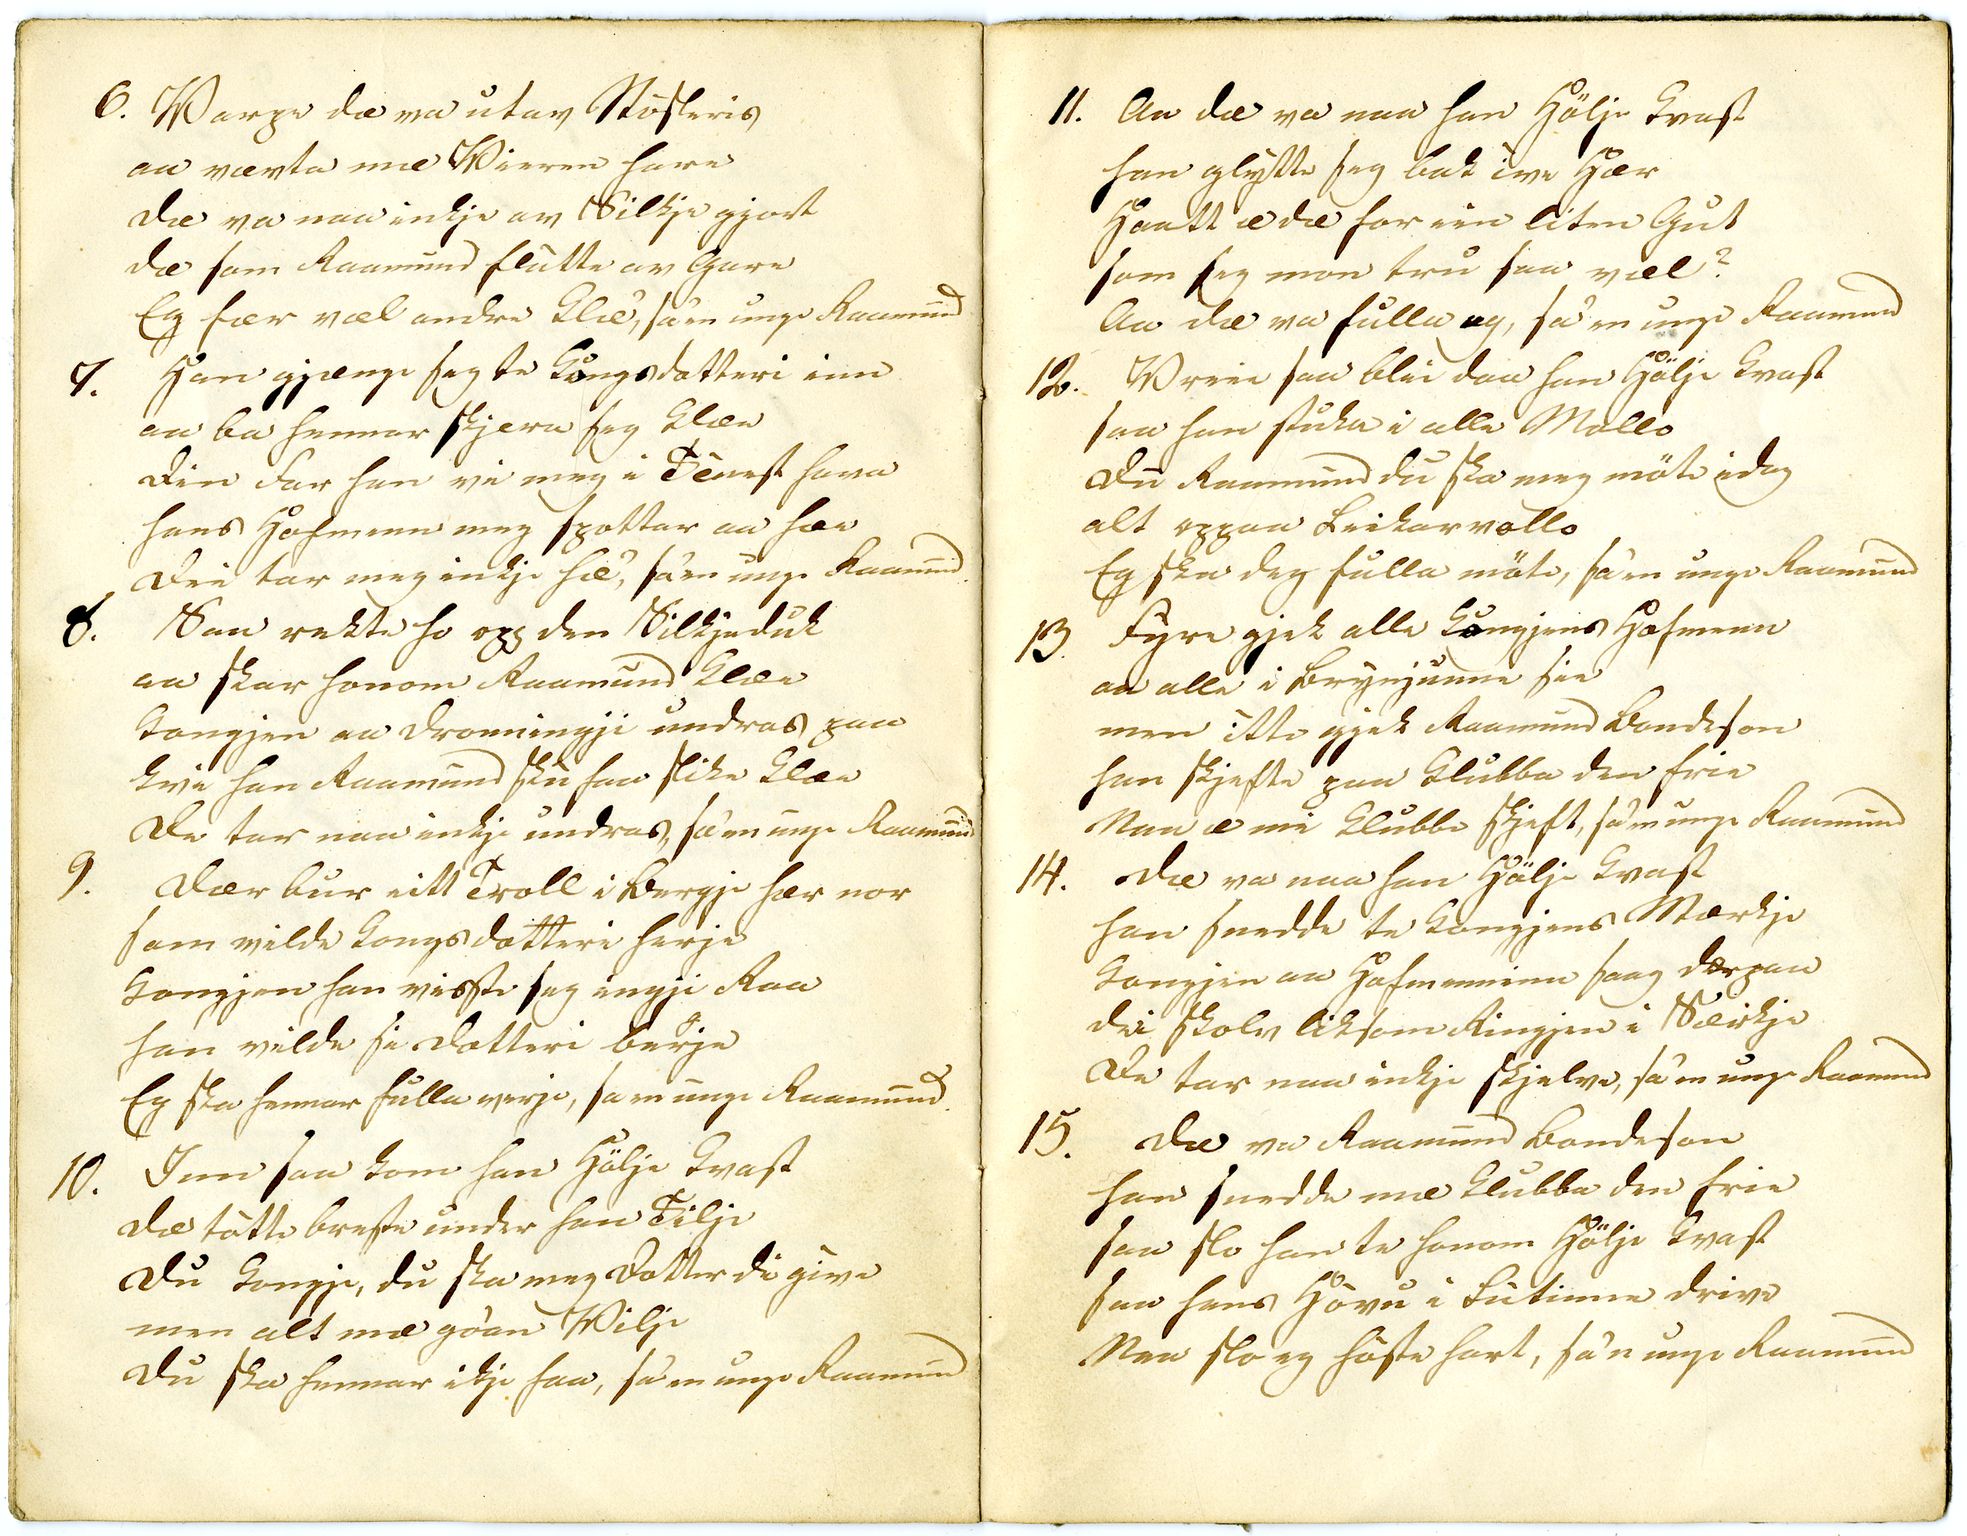 6. Warpe dæ va utav Nöskeris
aa vævta mæ Wieren hare
dæ va naa inkje av Silkje gjort
dæ som Raamund flutte av Gare
Eg fær væl andre Klæ', sa'en unge Raamund
7. Han gjænge seg te Kongsdotteri inn
aa ba hennar skjera seg Klæe
Din Far han vi meg i Tenest hava
hans Hofmenn meg spottar aa hæe
Dei tar meg inkje hæ', sa'en unge Raamund
8. Saa rekte ho opp den Silkjeduk
aa skar honom Raamund Klæe
Kongjen aa Dronningji undras paa
kvi han Raamund sku faa slike Klæe
De tar naa inkje undras, sa'en unge Raamund
9. Dær bur eitt Troll i Bergje hær nor
som vilde Kongsdotteri herje
Kongjen han visste seg ingji Raa
han vilde si Dotteri berje
Eg ska hennar fulla verje, sa en unge Raamund
10. Inn saa kom han Hölje Kvast
dæ totte breste under han Tilje
Du Kongje, du ska meg Dotter di give
men alt mæ goan Vilje
Du ska hennar ikje faa, sa'en unge Raamund
11. Aa dæ va naa han Hölje Kvast
han glytte seg bak ive Hær
Haatt æ dæ for ein liten Gut
som seg mon tru saa væl?
Aa dæ va fulla eg, sa'en unge Raamund
12. Vreie saa blei daa han Hölje Kvast
saa han stuka i alle Mollo
Du Raamund du ska meg möte idag
alt oppaa Leikarvollo
Eg ska deg fulla möte, sa'en unge Raamund
13. Fyre gjek alle Kongjens Hofmenn
aa alle i Brynjunne sie
men itte gjek Raamund Bondeson
han skjefte paa Klubba den frie
Naa æ mi Klubbe skjeft, sa'en unge Raamund
14. Dæ va naa han Hölje Kvast
han snedde te Kongjens Mærkje
Kongjen aa Hofmennine saag dærpaa
dei skolv liksom Ringjen i Særkje
De tar naa inkje skjelve, sa'en unge Raamund
15. Dæ va Raamund Bondeson
han snedde mæ Klubba den frie
saa slo han te honom Hölje Kvast
saa hans Hovu i Lutinne drive
Naa slo eg höste hart, sa'n unge Raamund